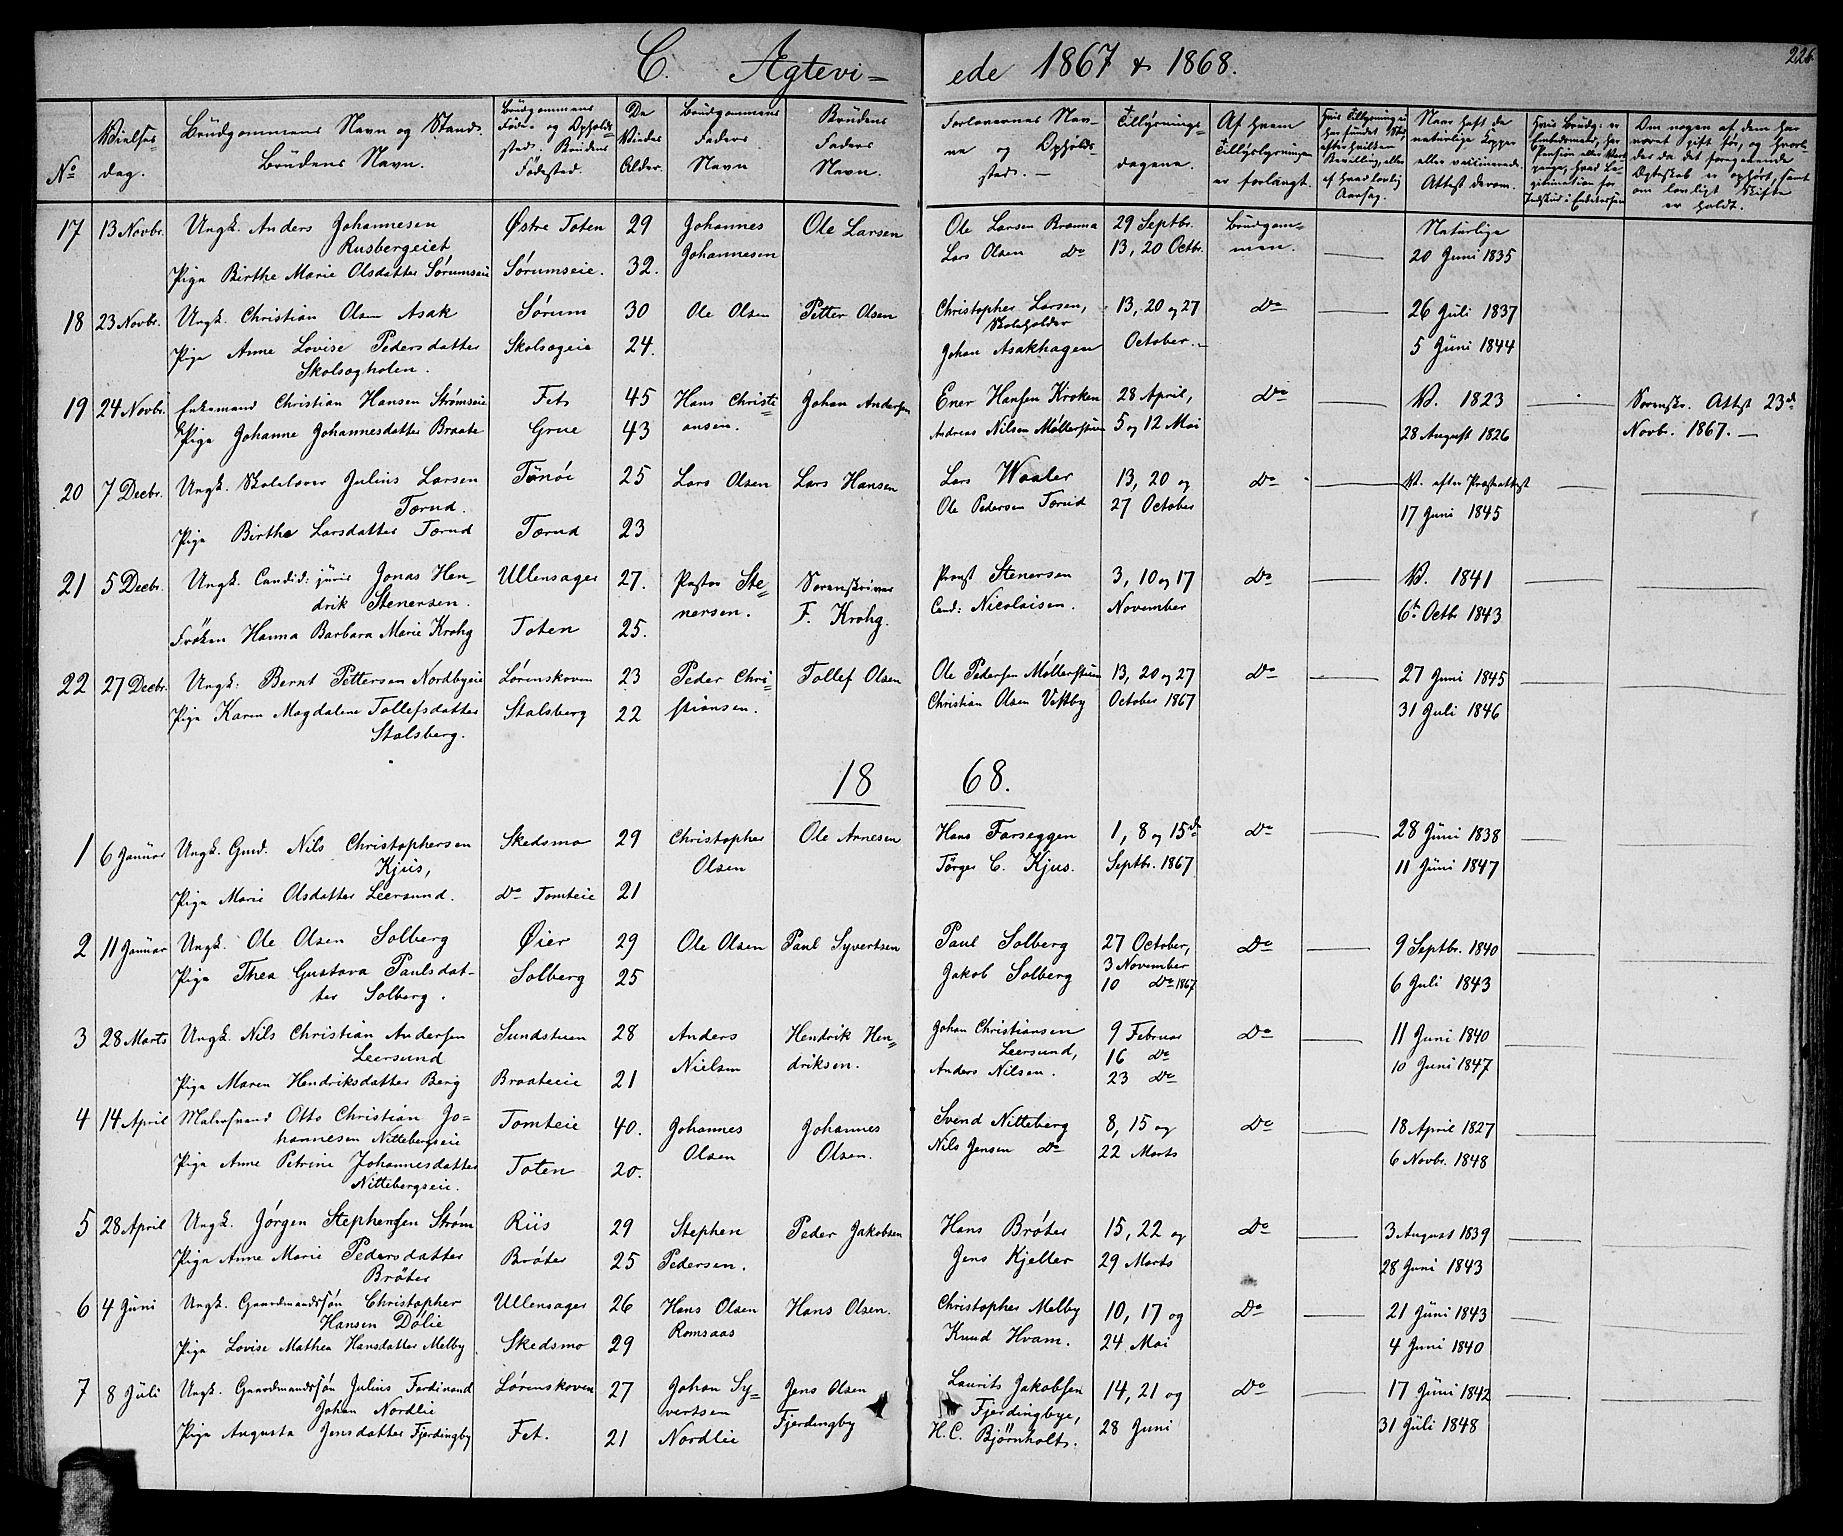 C. Ægtevi- ede 1867 & 1868.
226
No
Vielses-
dag.
Brüdgommens Navn og Stand.
Brüdens Navn.
Brüdgommens
Føde- og Opholds-
sted. Brüdens
Fødested.
De
Viedes
Alder.
Brüdgommens
Faders
Navn
Brüdens
Faders
Navn.
Forlovernes Nav-
ne og Opholds-
sted. —
Tillysnings-
dagene.
Af hvem
Tillyslysningen
er forlangt.
Naar haft de
naturlige Kopper
eller vaccinerede.
Attest derom.
Om nogen af dem har
været gift før, og hvorle-
des da det foregaaende
Ægteskab er ophørt, samt
om lovligt Skifte
er holdt.
17 13 Novbr. Ungk. Anders Johannesen Østre Toten 29 Johannes Ole Larsen Ole Larsen Branna 29 Septbr. Brüdgom- Naturlige
Rusbergeiet Johannesen Lars Olsen Do 13, 20 Octbr. men. 20 Juni 1835
Pige Birthe Marie Olsdatter Sørumseie Sørumseie. 32.
18 23 Novbr. Ungk. Christian Olsen Asak Sørum 30 Ole Olsen Petter Olsen Christopher Larsen, 13, 20 og 27 Do 26 Juli 1837
Skoleholder
Pige Anne Lovise Pedersdatter Skolsageie 24. Johan Asakhagen October.— 5 Jüni 1844
Skolsagholen.
19 24 Novbr. Enkemand Christian Hansen Strømseie Fet 45 Hans Christi- Johan Andersen Ener Hansen Kroken 28 April, Do V. 1823 Sorenskr. Attest 23de
Pige Johanne Johannesdatter Braate Grue 43 ansen. Andreas Nilsen Møllerstuen 5 og 12 Mai 28 August 1826 Novbr. 1867.—
20 7 Decbr. Ungk. Skolelærer Julius Larsen Tønøi 25 Lars Olsen Lars Hansen Lars Waaler 13, 20 og Do V. efter Præsteattest
Torud. Ole Pedersen Torud 27 October 17 Juni 1845
Pige Birthe Larsdatter Torud Torud 23
21 5 Decbr. Ungk. Candid: jüris Jonas Hen- Ullensager 27. Pastor Ste- Sorenskriver Provst Stenersen 3, 10 og 17 Do V. 1841
drik Stenersen. nersen. F. Krohg. Cand: Nicolaisen. November 6te Octbr 1843
Frøken Hanna Barbara Marie Krohg Toten 25.
22 27 Decbr. Ungk. Bernt Pettersen Nordbyeie Lørenskoven 23 Peder Chri- Tollef Olsen Ole Pedersen Møllerstuen 13, 20 og 27 Do 27 Juni 1845
Pige Karen Magdalene Tollefsdatter Stalsberg 22 stiansen. Christian Olsen Vestby October 1867 31 Juli 1846
Stalsberg.
18 68.
1 6 Januar Ungk. Gmd. Nils Christophersen Skedsmo 29 Christopher Ole Arnesen Hans Farseggen 1, 8 og 15de Do 28 Jüni 1838
Kjus, Olsen Tørger C. Kjus. Septbr. 1867 11 Jüni 1847
Pige Marie Olsdatter Leersund. Do Tomteie 21
2 11 Januar Ungk. Ole Olsen Solberg Øier 29 Ole Olsen Paul Syvertsen Paul Solberg 27 October, Do 9 Septbr. 1840
Pige Thea Gustava Paulsdat- Solberg 25 Jakob Solberg 3 November 6 Juli 1843
ter Solberg. 10 Do 1867
3 28 Marts Ungk. Nils Christian Andersen Sundstuen 28 Anders Hendrik Hen- Johan Christiansen 9 Februar Do 11 Juni 1840
Leersund Nielsen driksen. Leersund, 16 Do 10 Juni 1847
Pige Maren Hendriksdatter Berg Braateie 21 Anders Nilsen. 23 Do
4 14 April Malersvend Otto Christian Jo- Tomteie 40. Johannes Johannes Svend Nitteberg 8, 15 og Do 18 April 1827
hannesen Nittebergseie Olsen Olsen. Nils Jensen Do 22 Marts 6 Novbr. 1848
Pige Anne Petrine Johannesdatter Toten 20.
Nittebergseie.
5 28 April Ungk. Jørgen Stephensen Strøm Riis 29 Stephen Peder Jakobsen Hans Brøter 15, 22 og Do 3 August 1839
Pige Anne Marie Pedersdatter Brøter 25 Pedersen. Jens Kjeller 29 Marts 28 Juni 1843
Brøter
6 4 Juni Ungk. Gaardmandssøn Christopher Ullensager 26 Hans Olsen Hans Olsen. Christopher Melby 10, 17 og Do 21 Jüni 1843
Hansen Dølie Romsaas
Pige Lovise Mathea Hansdatter Melby. Skedsmo 29 Knud Hvam. 24 Mai 4 Juni 1840
7 8 Jüli Ungk. Gaardmandssøn Julius Ferdinand Lørenskoven 27 Johan Sy- Jens Olsen Laurits Jakobsen 14, 21 og Do 17 Jüni 1842
Johan Nordlie vertsen Fjerdingby Fjerdingbye,
Pige Augusta Jensdatter Fjerdingby Fet. 21 Nordlie H. C. Bjørnholt. 28 Juni 31 Jüli 1848